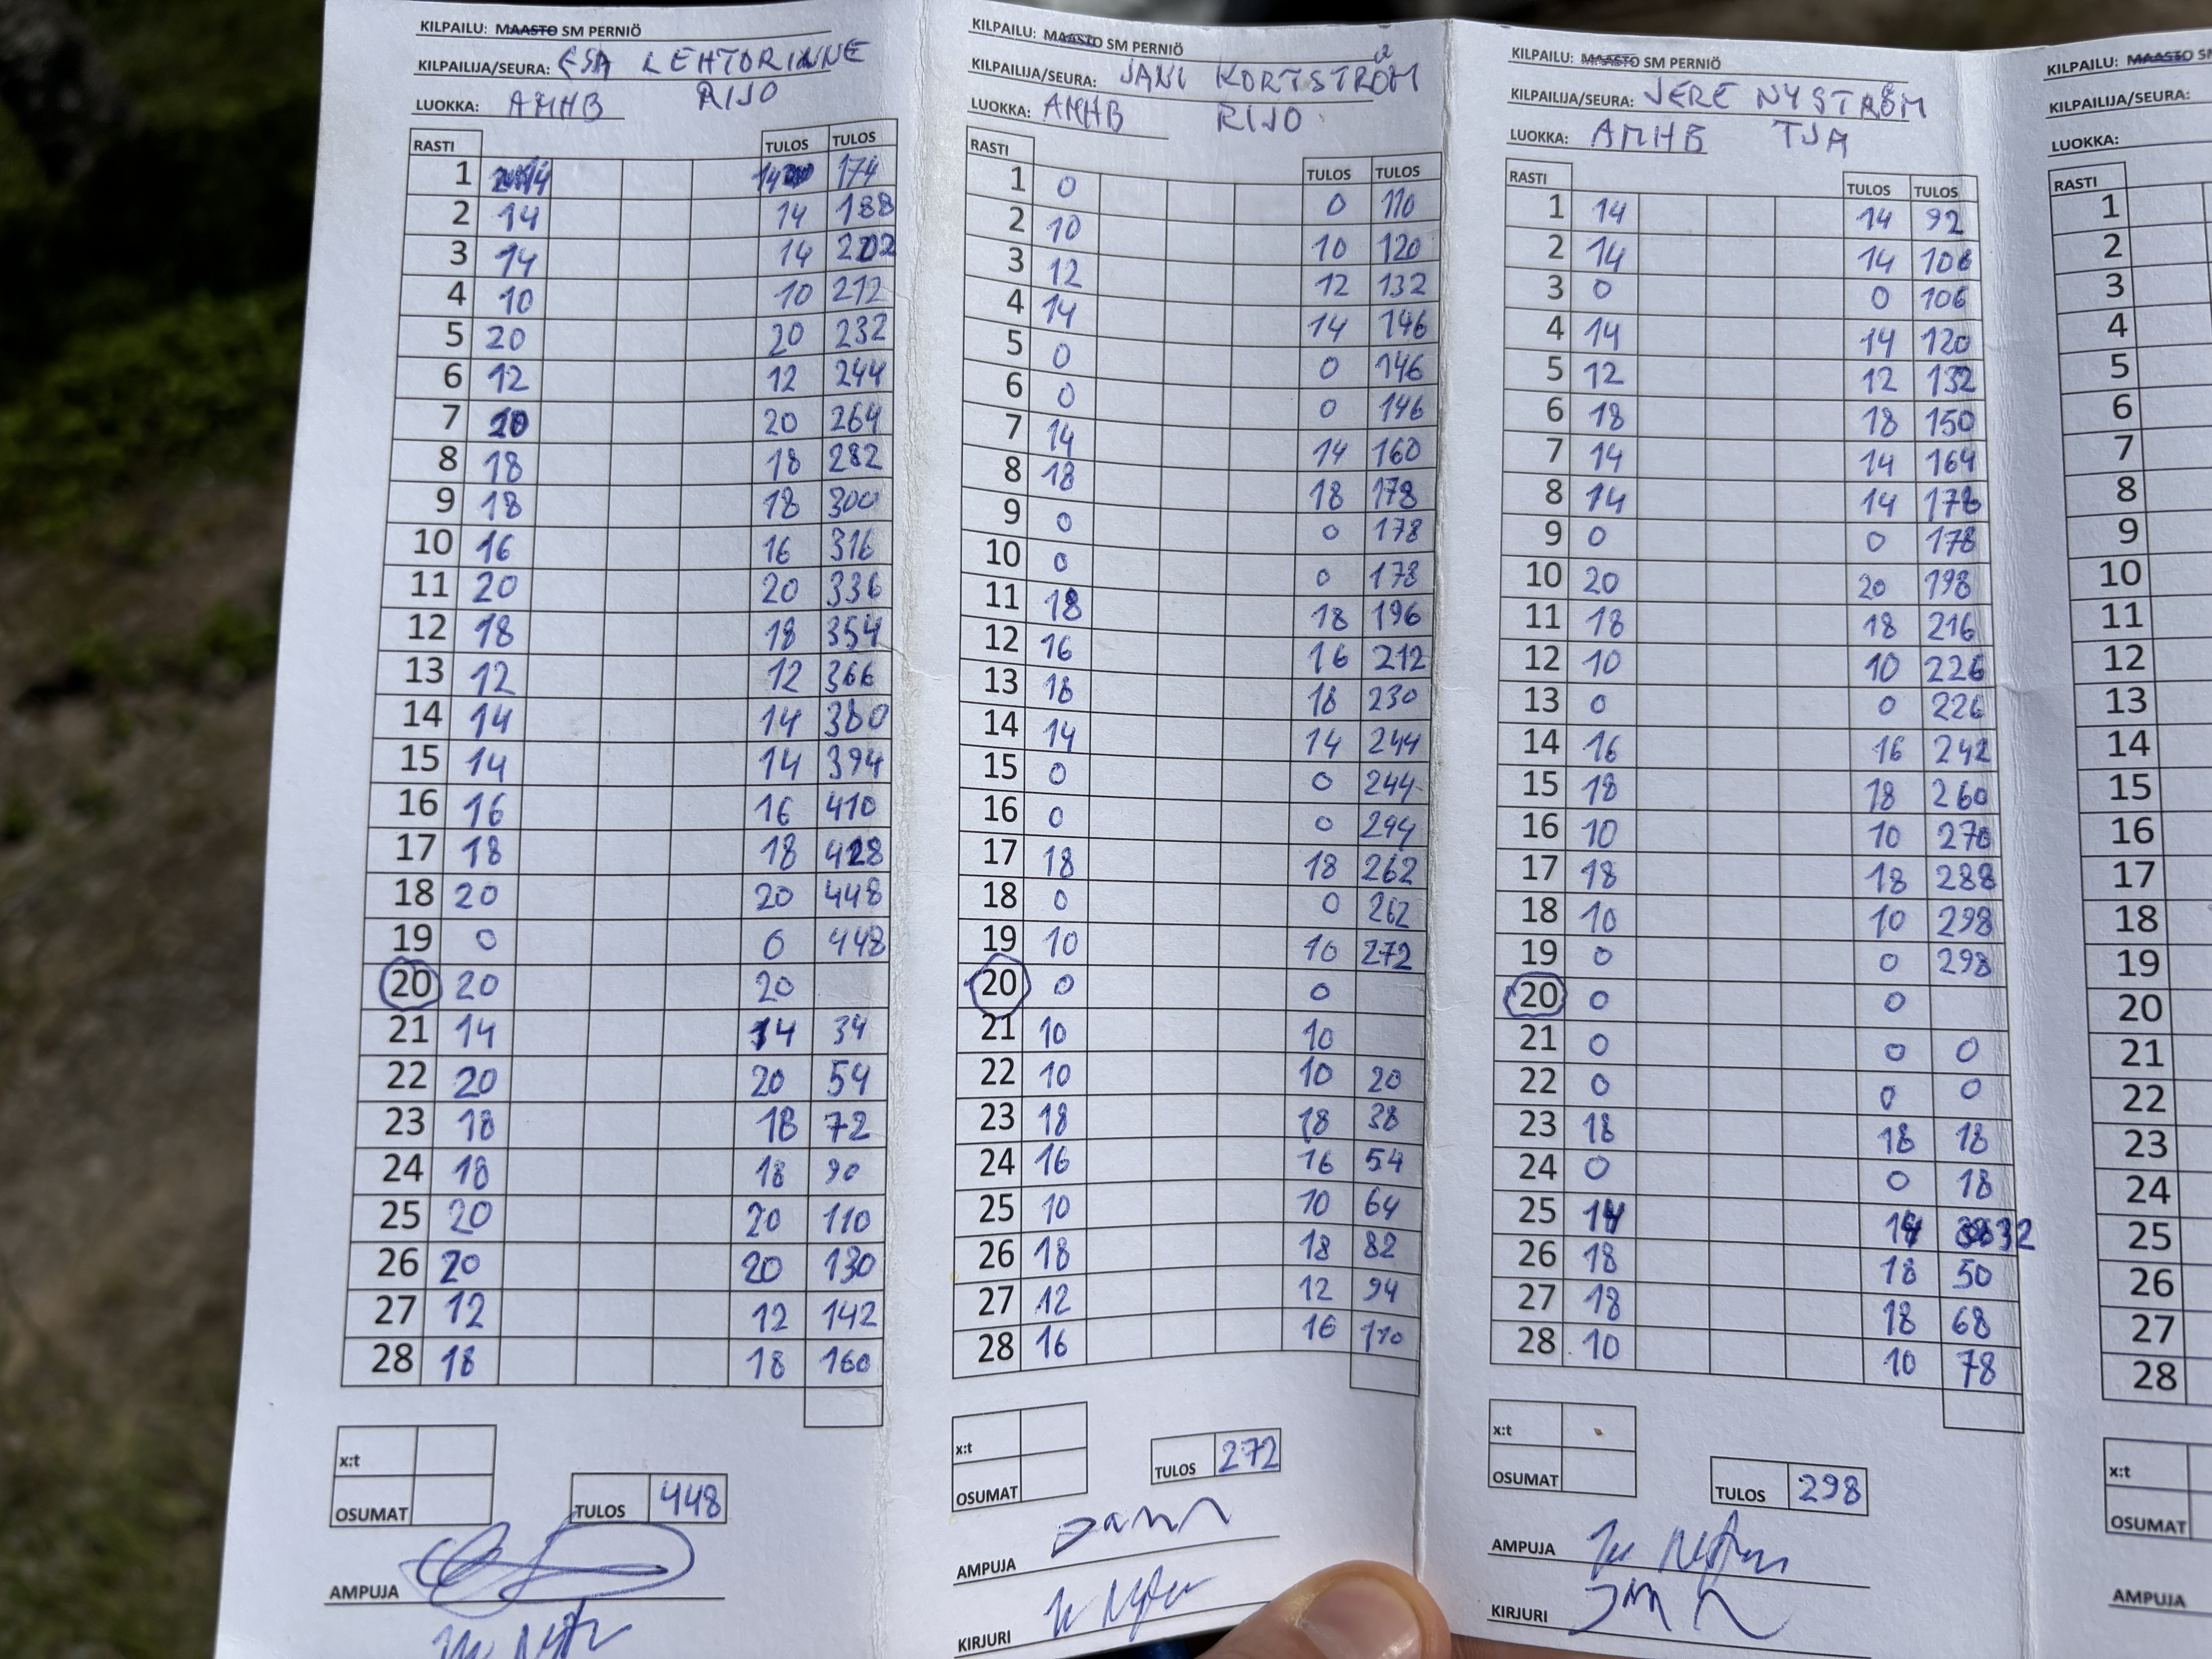 KILPAILU: MAASTO SM PERNIÖ
KILPAILIJA/SEURA: ESA LEHTORINNE
LUOKKA: AMHB RIJO
RASTI TULOS TULOS
1 14 14 174
2 14 14 188
3 14 14 202
4 10 10 212
5 20 20 232
6 12 12 244
7 20 20 264
8 18 18 282
9 18 18 300
10 16 16 316
11 20 20 336
12 18 18 354
13 12 12 366
14 14 14 380
15 14 14 394
16 16 16 410
17 18 18 428
18 20 20 448
19 0 0 448
20 20 20
21 14 14 34
22 20 20 54
23 18 18 72
24 18 18 90
25 20 20 110
26 20 20 130
27 12 12 142
28 18 18 160
x:t
OSUMAT
TULOS 448
AMPUJA
KILPAILU: MAASTO SM PERNIÖ
KILPAILIJA/SEURA: JANI KORTSTRÖM
LUOKKA: AMHB RIJO
RASTI TULOS TULOS
1 0 0 110
2 10 10 120
3 12 12 132
4 14 14 146
5 0 0 146
6 0 0 146
7 14 14 160
8 18 18 178
9 0 0 178
10 0 0 178
11 18 18 196
12 16 16 212
13 18 18 230
14 14 14 244
15 0 0 244
16 0 0 244
17 18 18 262
18 0 0 262
19 10 10 272
20 0 0
21 10 10
22 10 10 20
23 18 18 38
24 16 16 54
25 10 10 64
26 18 18 82
27 12 12 94
28 16 16 110
x:t
OSUMAT
TULOS 272
AMPUJA
KIRJURI
KILPAILU: MAASTO SM PERNIÖ
KILPAILIJA/SEURA: JERE NYSTRÖM
LUOKKA: AMHB TJA
RASTI TULOS TULOS
1 14 14 92
2 14 14 106
3 0 0 106
4 14 14 120
5 12 12 132
6 18 18 150
7 14 14 164
8 14 14 178
9 0 0 178
10 20 20 198
11 18 18 216
12 10 10 226
13 0 0 226
14 16 16 242
15 18 18 260
16 10 10 270
17 18 18 288
18 10 10 298
19 0 0 298
20 0 0
21 0 0 0
22 0 0 0
23 18 18 18
24 0 0 18
25 14 14 32
26 18 18 50
27 18 18 68
28 10 10 78
x:t
OSUMAT
TULOS 298
AMPUJA
KIRJURI
KILPAILU: MAASTO SM
KILPAILIJA/SEURA:
LUOKKA:
RASTI
1
2
3
4
5
6
7
8
9
10
11
12
13
14
15
16
17
18
19
20
21
22
23
24
25
26
27
28
x:t
OSUMAT
AMPUJA